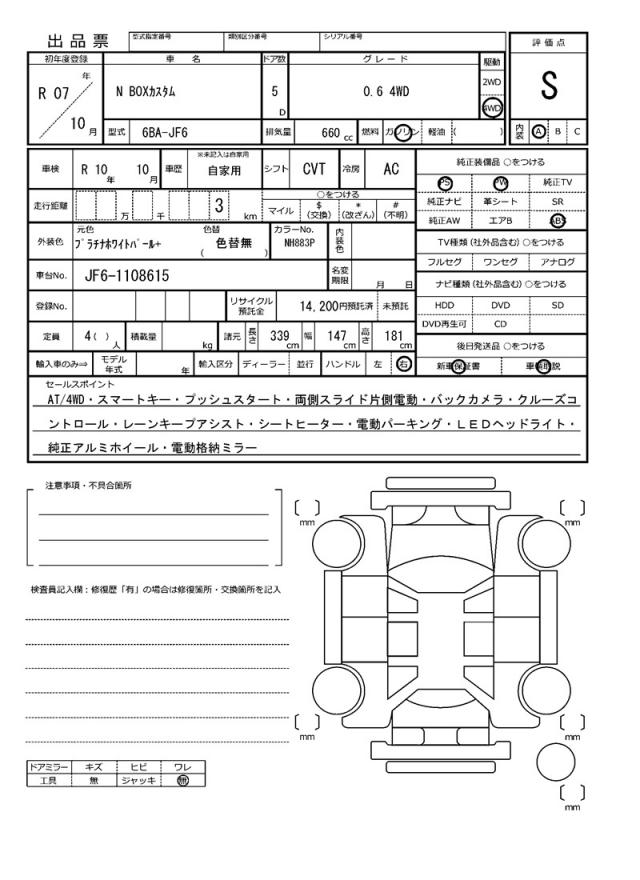 出品票
型式指定番号 類別区分番号 シリアル番号
評価点
初年度登録 車名 ドア数 グレード 駆動
R 07 年 10 月
N BOXカスタム
5 D
0.6 4WD
2WD
4WD
S
型式 6BA-JF6 排気量 660 cc 燃料 ガソリン 軽油 ( )
内装 A B C
車検 R 10 年 10 月 車歴 ※未記入は自家用 自家用 シフト CVT 冷房 AC
純正装備品 ○をつける
PS PW 純正TV
純正ナビ 革シート SR
純正AW エアB ABS
走行距離 万 千 3 km
○をつける
マイル $(交換) *(改ざん) #(不明)
外装色 元色 プラチナホワイトパール+ 色替 ( 色替無 ) カラーNo. NH883P 内装色
TV種類 (社外品含む) ○をつける
フルセグ ワンセグ アナログ
車台No. JF6-1108615 名変期限 月 日
ナビ種類 (社外品含む) ○をつける
HDD DVD SD
DVD再生可 CD
登録No. リサイクル預託金 14,200円預託済 未預託
定員 4( ) 人 積載量 kg 諸元 長さ 339 cm 幅 147 cm 高さ 181 cm
後日発送品 ○をつける
新車保証書 車輌取説
輸入車のみ⇒ モデル年式 年 輸入区分 ディーラー 並行 ハンドル 左 右
セールスポイント
AT/4WD・スマートキー・プッシュスタート・両側スライド片側電動・バックカメラ・クルーズコ
ントロール・レーンキープアシスト・シートヒーター・電動パーキング・ＬＥＤヘッドライト・
純正アルミホイール・電動格納ミラー
注意事項・不具合箇所
検査員記入欄：修復歴「有」の場合は修復箇所・交換箇所を記入
mm
mm
mm
mm
mm
ドアミラー キズ ヒビ ワレ
工具 無 ジャッキ 無